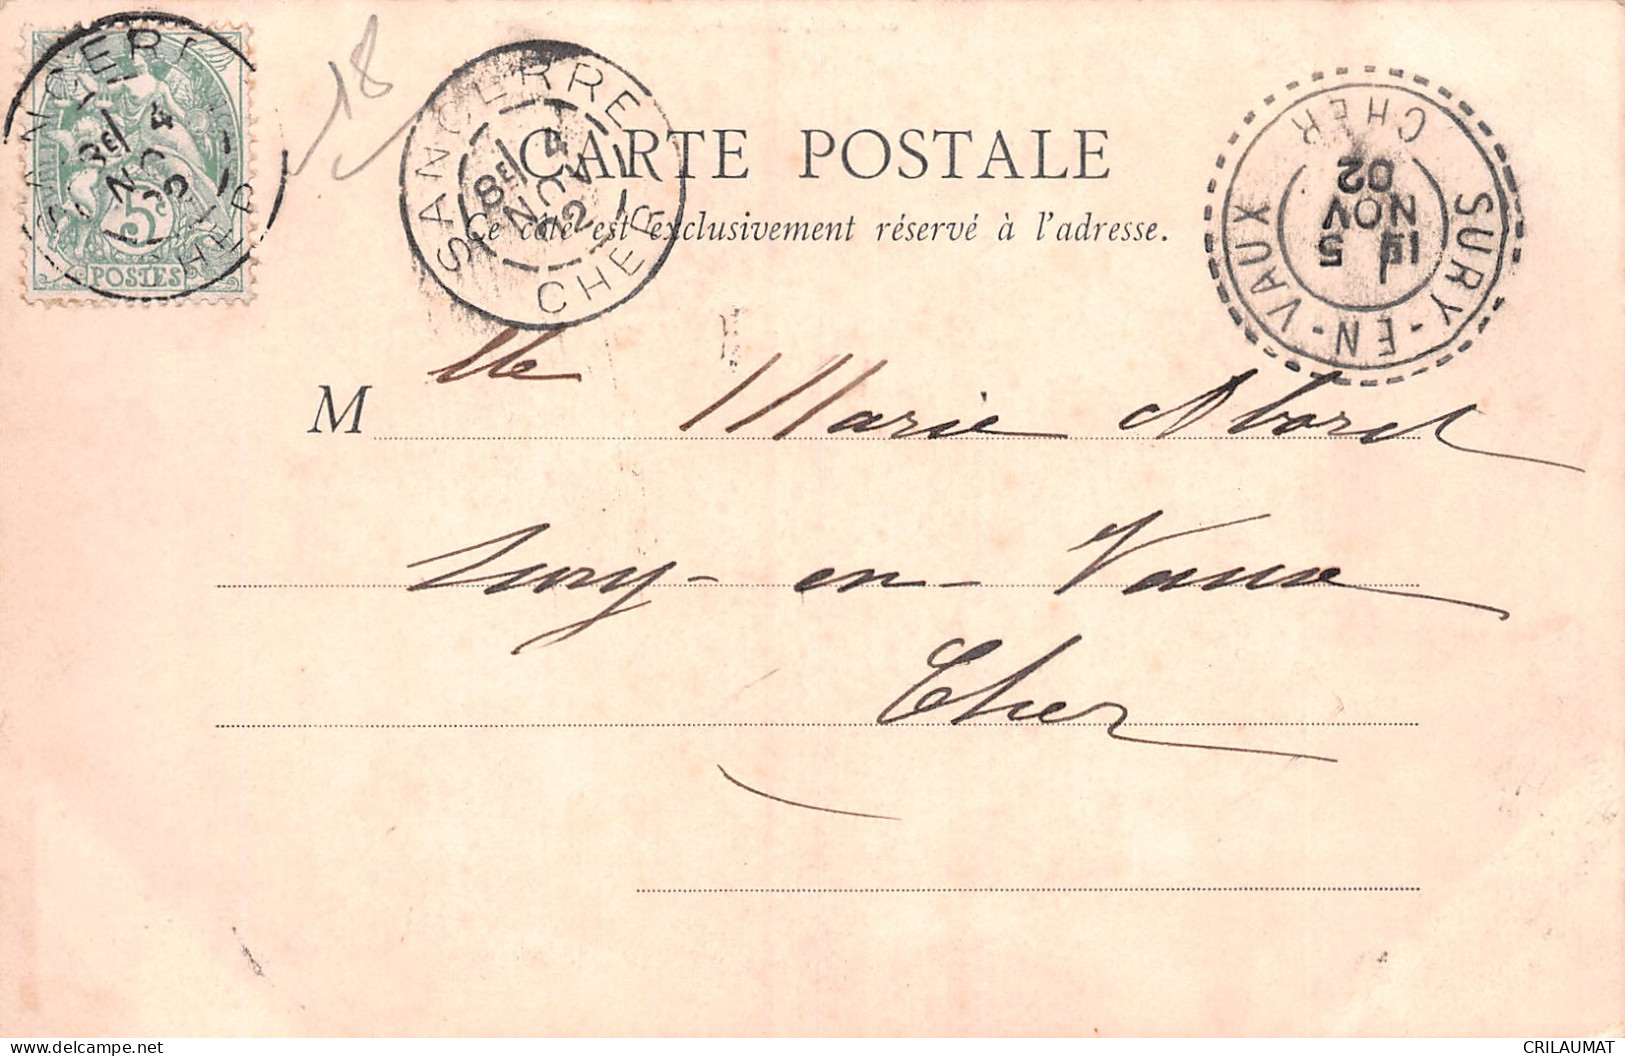 18
SANCERRE
8E/ 4
NOV
02
CHER
5c
POSTES
SANCERRE
8E/ 4
NOV
02
CHER
CARTE POSTALE
Ce côté est exclusivement réservé à l'adresse.
SURY-EN-VAUX
1E 5
NOV
02
CHER
Mlle Marie
Sury-en-Vaux
Cher
CRILAUMAT